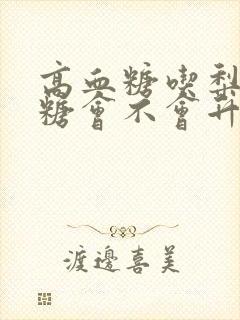 高血糖喫梨
糖會不會升
渡邊喜美